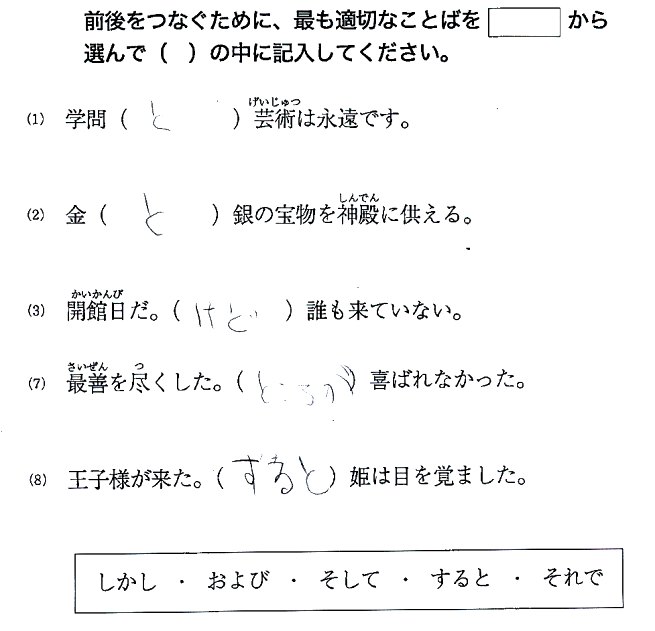 前後をつなぐために、最も適切なことばを から
選んで（ ）の中に記入してください。
げいじゅつ
(1) 学問（ と ）芸術は永遠です。
しんでん
(2) 金（ と ）銀の宝物を神殿に供える。
かいかんび
(3) 開館日だ。（ けど ）誰も来ていない。
さいぜん つ
(7) 最善を尽くした。（ ところが ）喜ばれなかった。
(8) 王子様が来た。（ すると ）姫は目を覚ました。
しかし ・ および ・ そして ・ すると ・ それで